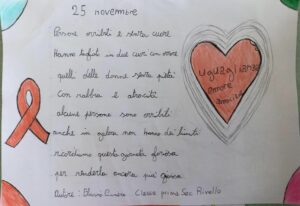 25 novembre
Persone orribili e senza cuore
Hanno trafitti in due cuori con orrore
quelli delle donne senza pietà
Con rabbia e atrocità
alcune persone sono orribili
anche in galera non hanno dei limiti
ricordiamo questa giornata
per renderla ancora più
Autore: Classe prima Sec Rivello
uguaglianza
amore